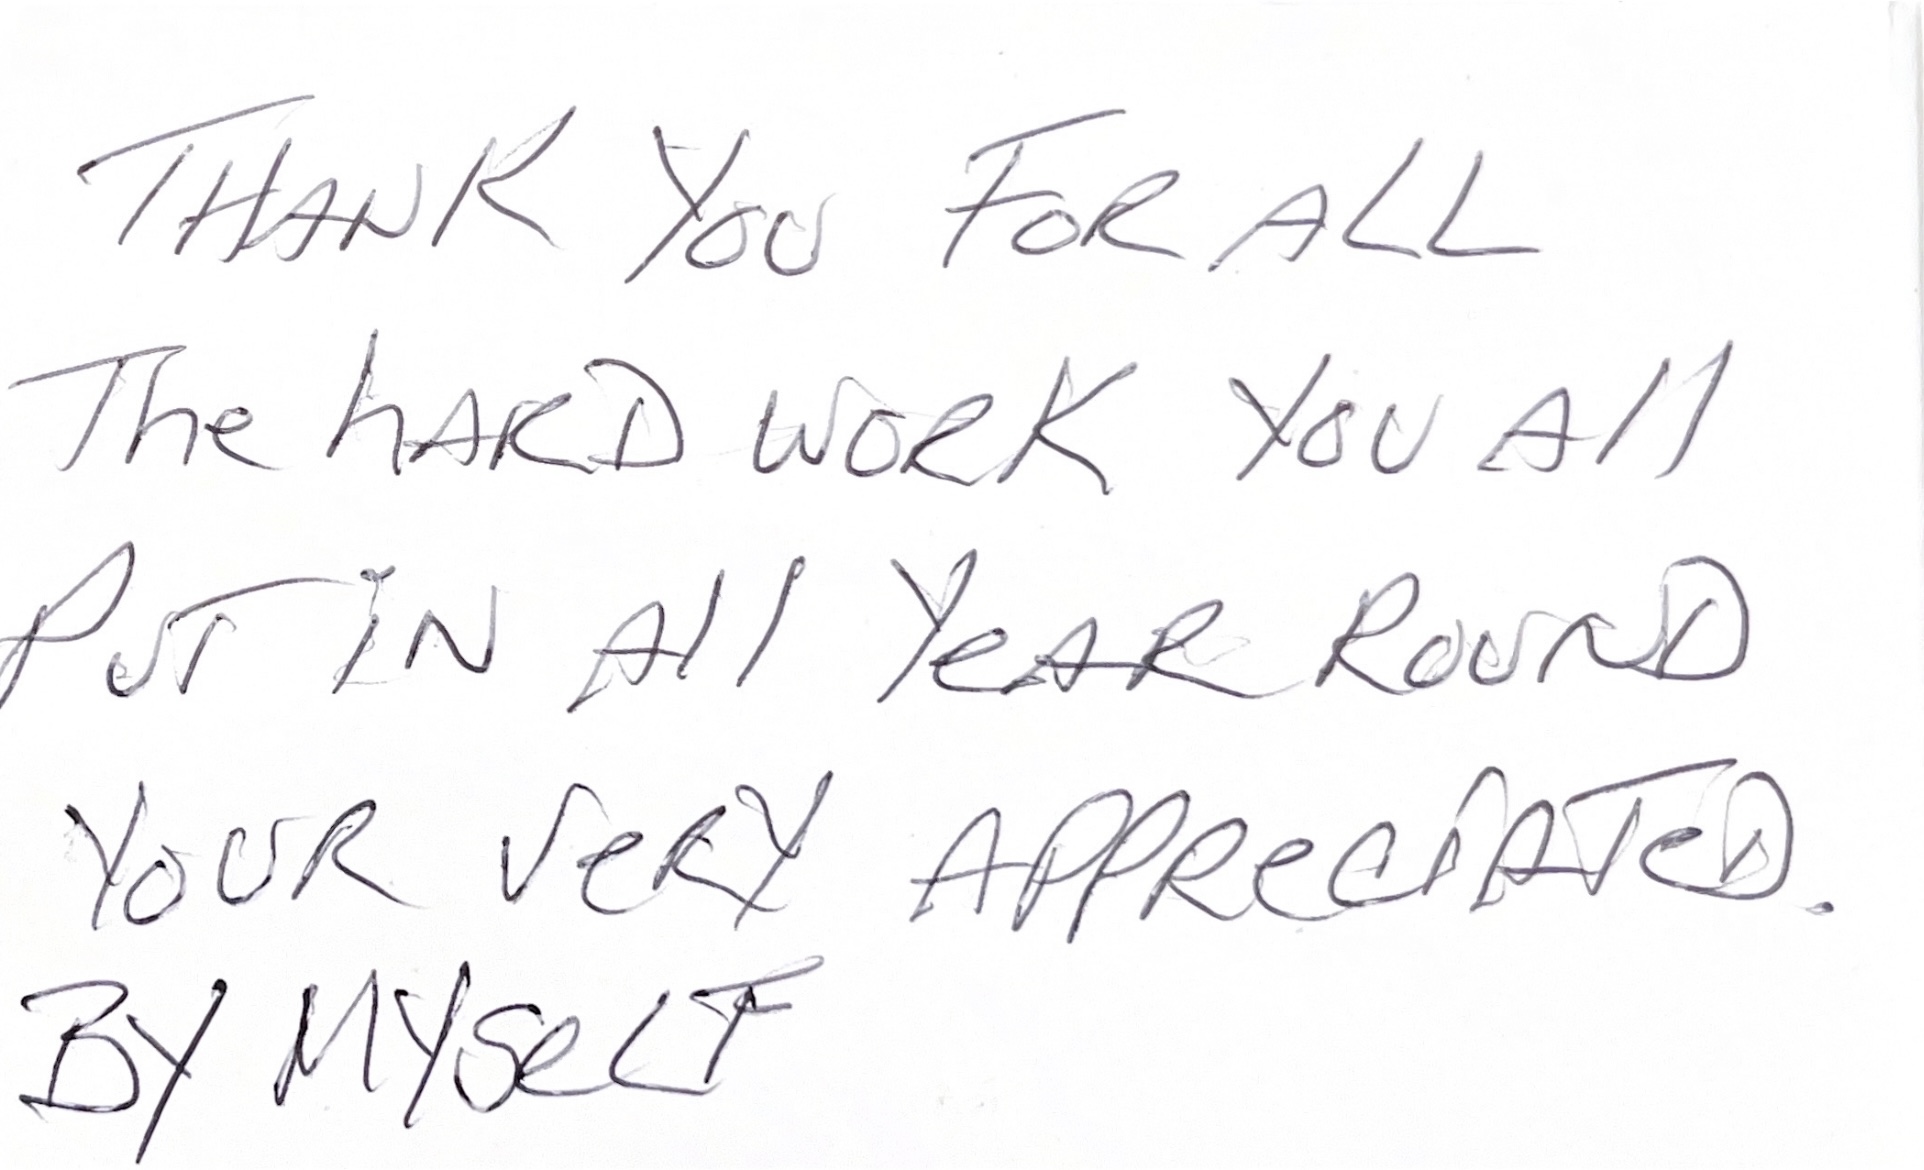 THANK YOU FOR ALL
The hARD WORK YOU All
PUT IN All YeAR ROUND
YOUR VeRY APPReCIATeD.
BY MYSeLF